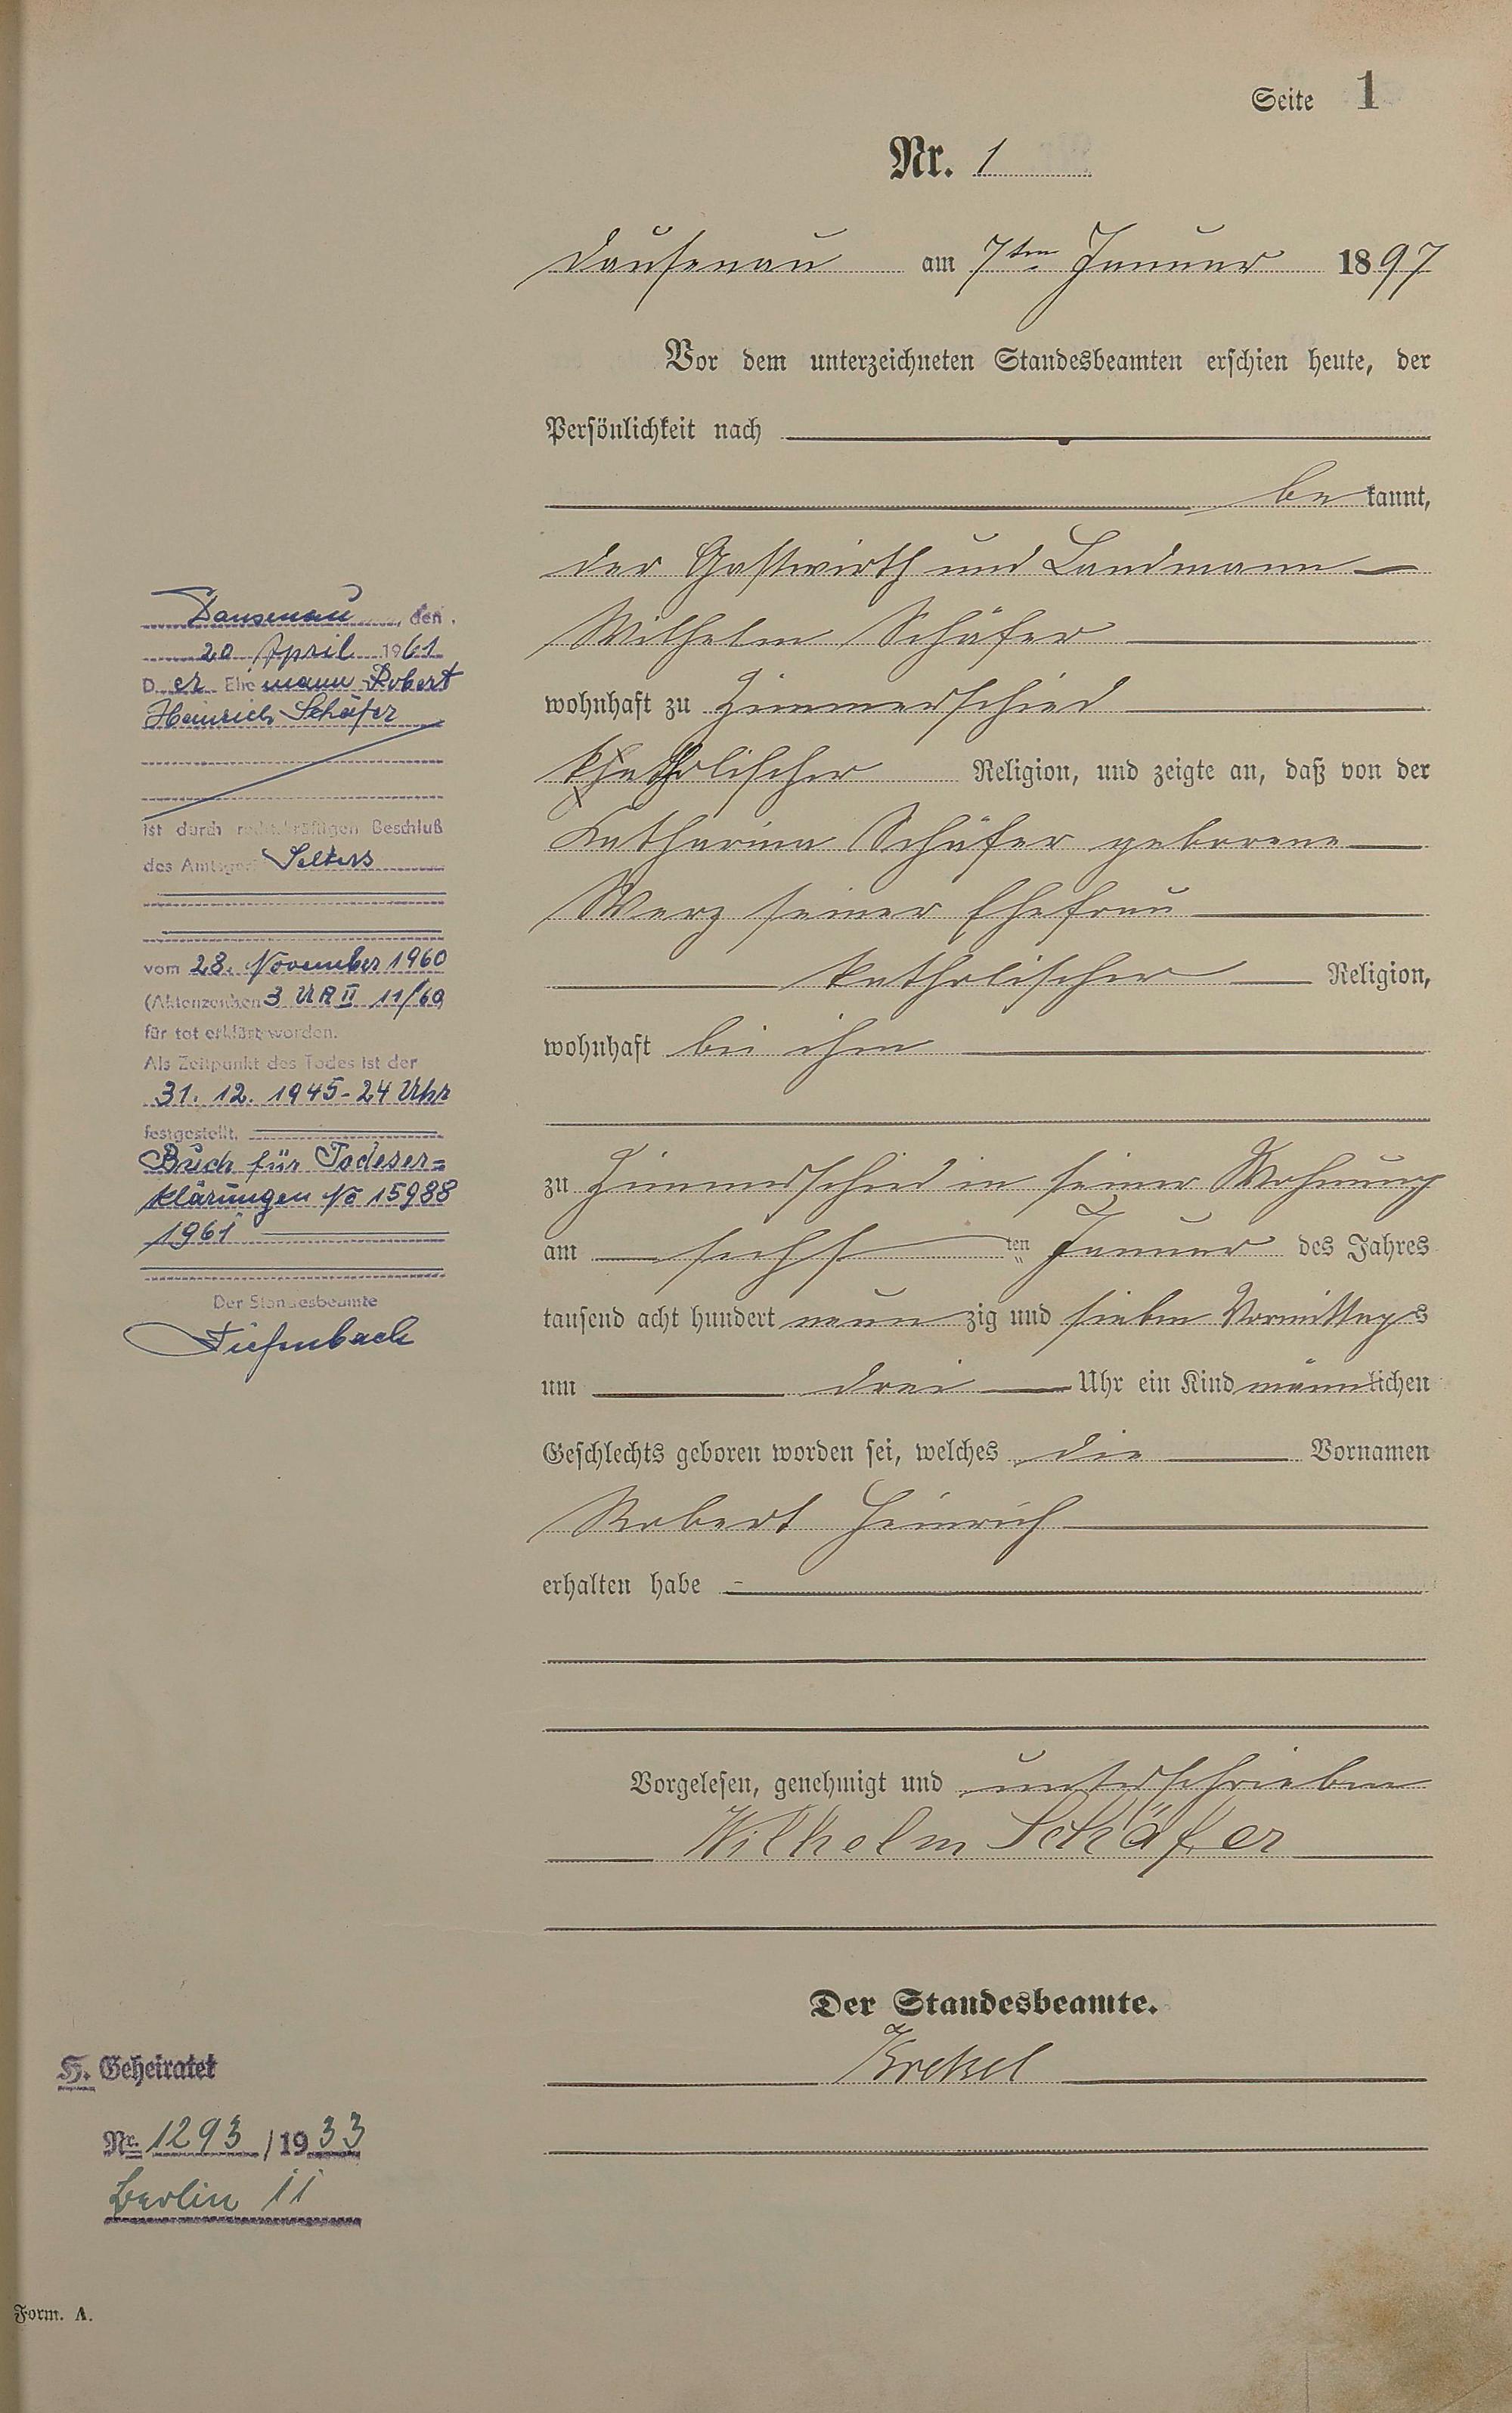 Seite 1
Nr. 1
Dausenau am 7ten Januar 1897
Vor dem unterzeichneten Standesbeamten erschien heute, der
Persönlichkeit nach
bekannt,
der Gastwirth und Landmann
Wilhelm Schäfer
wohnhaft zu Zimmerschied
katholischer Religion, und zeigte an, daß von der
Katharina Schäfer geborene
Merz seiner Ehefrau
katholischer Religion,
wohnhaft bei ihm
zu Zimmerschied in seiner Wohnung
am sechsten Januar des Jahres
tausend acht hundert neunzig und sieben Vormittags
um drei Uhr ein Kind männlichen
Geschlechts geboren worden sei, welches die Vornamen
Robert Heinrich
erhalten habe
Vorgelesen, genehmigt und unterschrieben
Wilhelm Schäfer
Der Standesbeamte.
Krekel
Dausenau, den
20 April 1961
Der Ehemann Robert
Heinrich Schäfer
ist durch rechtskräftigen Beschluß
des Amtsger. Selters
vom 28. November 1960
(Aktenzeichen 3 UR II 11/60)
für tot erklärt worden.
Als Zeitpunkt des Todes ist der
31. 12. 1945 - 24 Uhr
festgestellt.
Buch für Todeser-
klärungen No 15988
1961
Der Standesbeamte
Tiefenbach
H. Geheiratet
Nr. 1293/1933
Berlin II
Form. A.